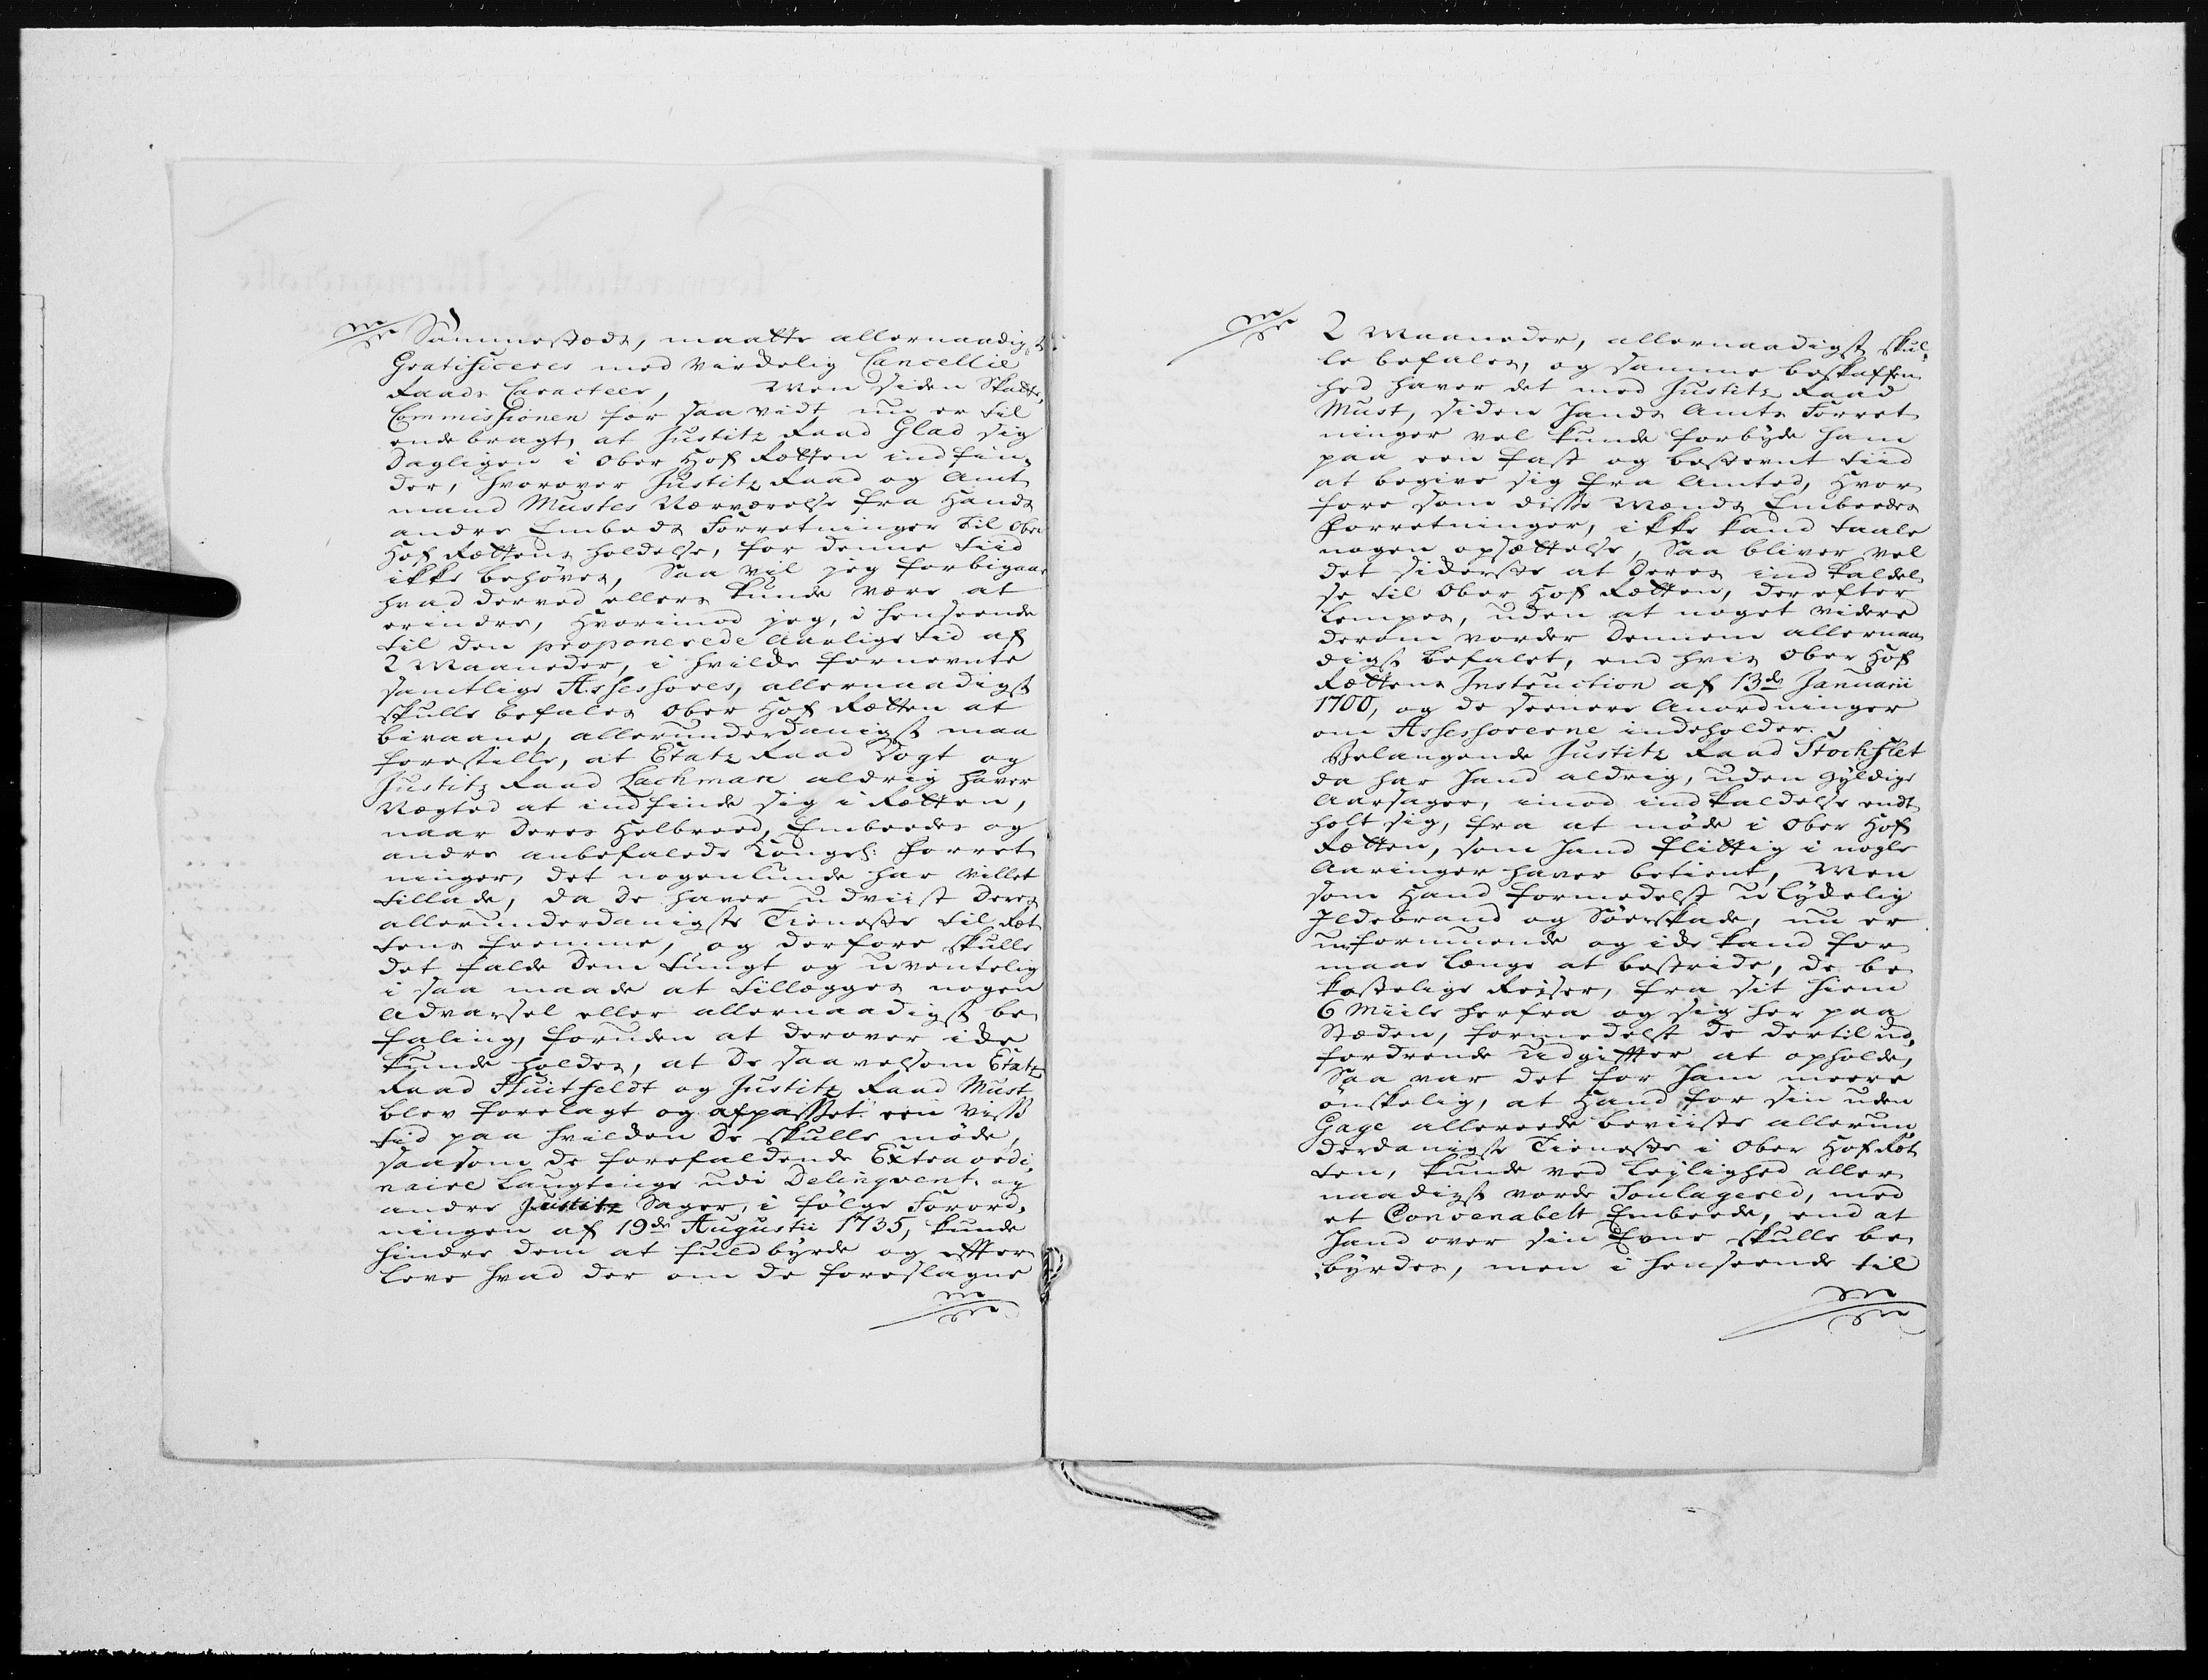 Sammesteds, maatte allernaadigst
Gratificeres med virkelig Cancellie
Raads Caracteer, Men siden Skatte,
Commissionen for saa vidt nu er til
ende bragt, at Justitz Raad Glad sig
Dagligen i Ober Hof Retten indfin,
der, hvorover Justitz Raad og Amt
mand Mustes Nærværelse fra Hands
andre Embeds Forretninger til Ober
Hof Rettens holdelse, for denne tiid
ikke behøves, Saa vil jeg forbigaae
hvad derved ellers kunde være at
erindre, Hvorimod jeg, i henseende
til den proponerede Aarlige tid af
2 Maaneder, i hvilke fornevnte
samtlige Assessores, allernaadigst
skulle befales Ober Hof Retten at
bivaane, allerunderdanigst maa
forestille, at Etatz Raad Vogt og
Justitz Raad Lachman aldrig haver
Nægted at indfinde sig i Retten,
naar Deres Helbreed, Embeeder og
andre anbefalede Kongel: Forret
ninger, det nogenlunde har villet
tillade, da De haver udviist Deres
allerunderdanigste Tieneste til Ret
tens fremme, og derfore skulle
det falde Dem tungt og uventelig
i saa maade at tillægges nogen
Advarsel eller allernaadigst be
faling, foruden at derover icke
kunde holdes, at De saavelsom Etatz
Raad Huitfeldt og Justitz Raad Must
blev forelagt og afpasset een viss
tid paa hvilken De skulle møde,
saasom de forefaldende Extraordi,
naire Laugtinge udi Delinqvent, og
andre Justitz Sager, i følge Forord,
ningen af 19de Augustii 1735, kunde
hindre dem at fuldbyrde og effter
leve hvad der om de foreslagne
2 Maaneder, allernaadigst skul,
le befales, og samme beskaffen
hed haver det med Justitz Raad
Must, siden Hands Amts Forret
ninger vel kunde forbyde ham
paa een fast og bestemt tiid
at begive sig fra Amted, Hvor
fore som disse Mænds Embeeders
Forretninger, ikke kand taale
nogen opsættelse, Saa bliver vel
det sikerste at Deres indkaldel
se til Ober Hof Retten, derefter
lempes, uden at noget videre
derom vorder Dennem allernaa
digst befalet, end hvis Ober Hof
Rettens Instruction af 13de Januarii
1700, og de seenere Anordninger
om Assessorerne indeholder.
Belangende Justitz Raad Stochflet
da har Hand aldrig, uden gyldige
Aarsager, imod indkaldelse endt
holt sig, fra at møde i Ober Hof
Retten, som Hand flittig i nogle
Aaringer haver betient, Men
som Hand formedelst ulykelig
Ildebrand og Søeskade, nu er
uformuende og icke kand for
maae længe at bestride, de be
kostelige Reiser, fra sit Hiem
6 Miile herfra og sig her paa
Stæden, formedelst de dertil ud,
fordrende Udgiffter at opholde,
Saa var det for Ham meere
ønskelig, at Hand for sin uden
Gage allereede beviiste allerun
derdanigste Tieneste i Ober Hof Ret
ten, kunde ved leylighed aller
naadigst vorde Soulagered, med
et Convenabelt Embeede, end at
Hand over sin Evne skulle be
byrdes, men i henseende til